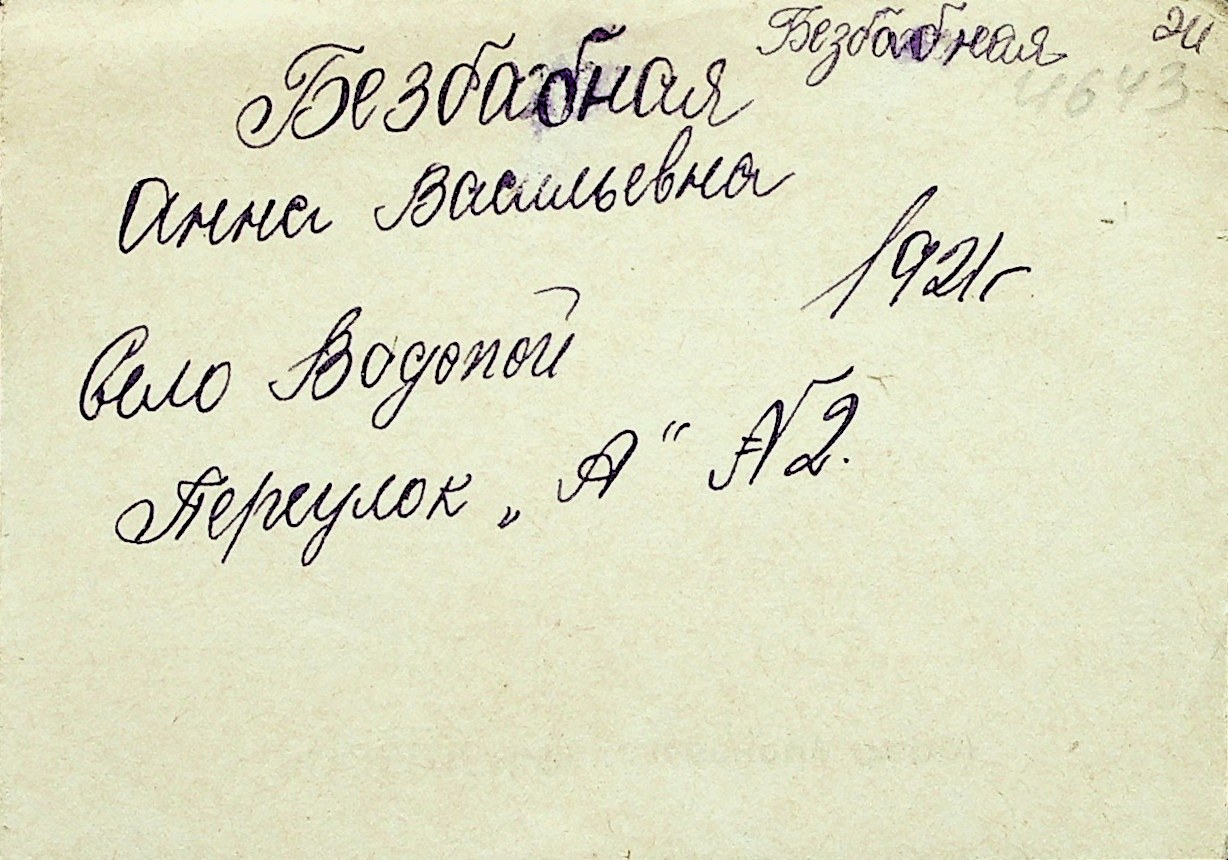 Безбабная 24
4643
Безбабная
Анна Васильевна
1921г
Село Водопой
Переулок „А“ №2.